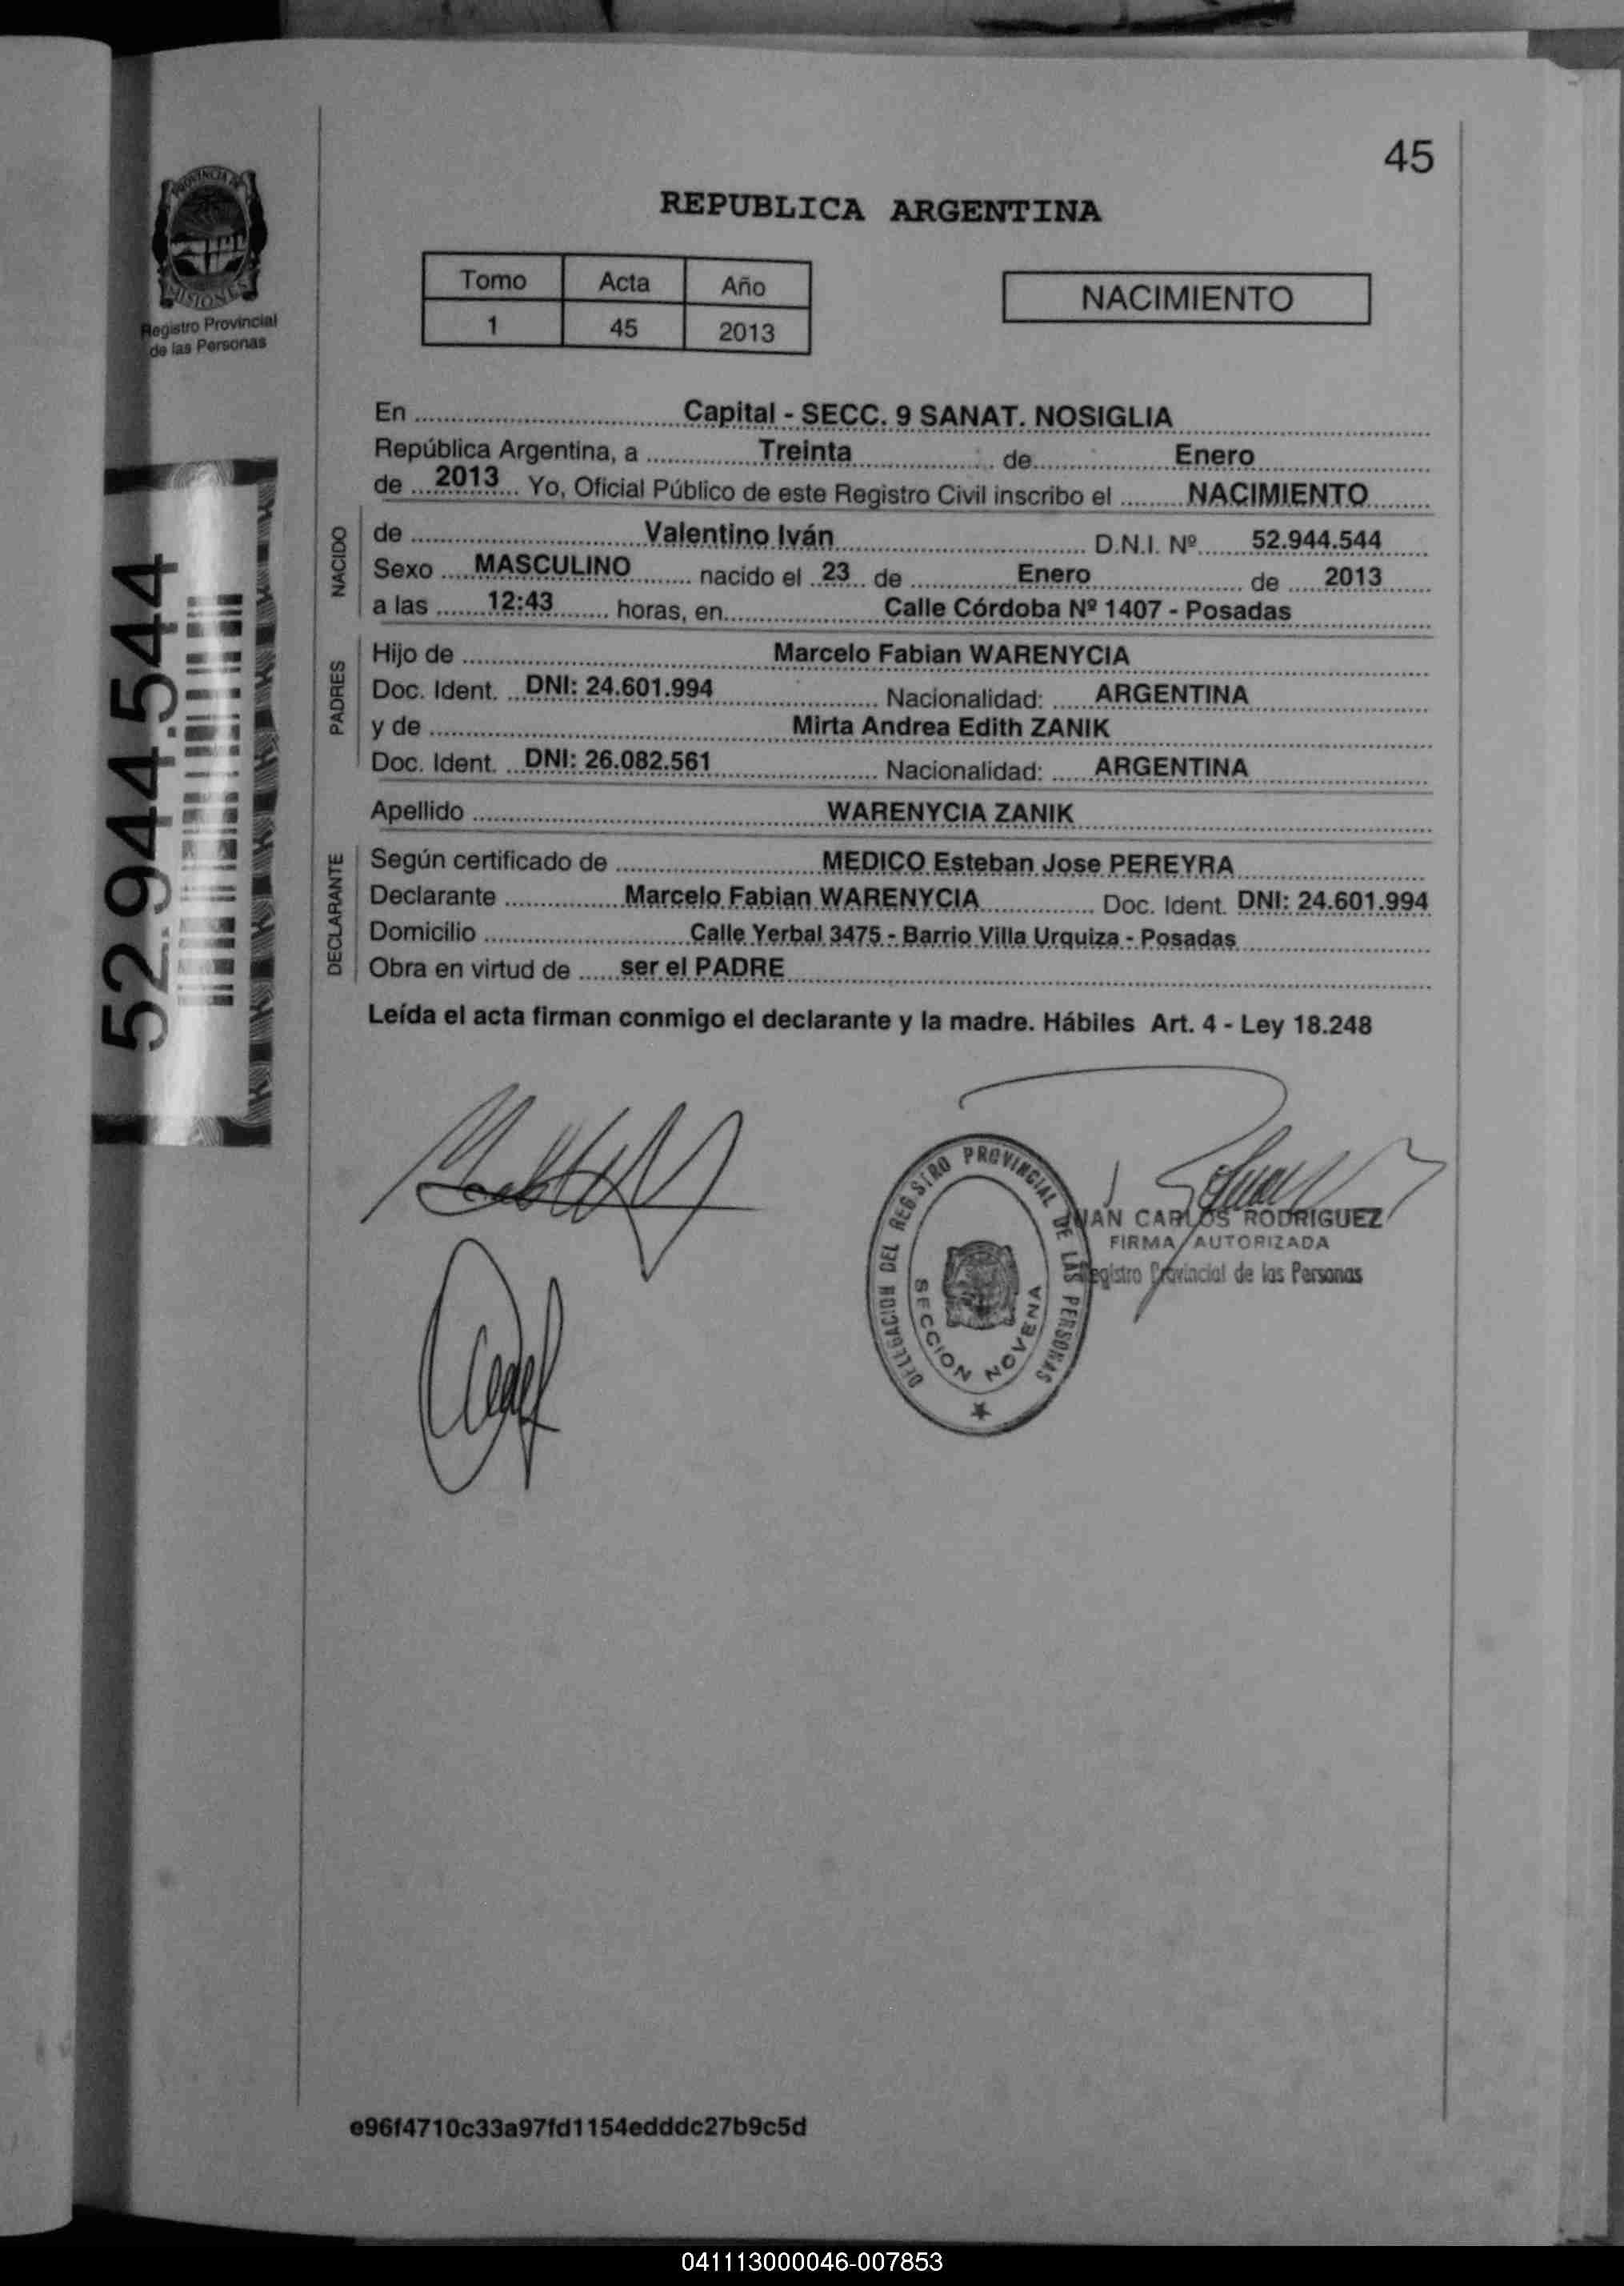 45
PROVINCIA DE
MISIONES
Registro Provincial
de las Personas
REPUBLICA ARGENTINA
Tomo Acta Año
1 45 2013
NACIMIENTO
En Capital - SECC. 9 SANAT. NOSIGLIA
República Argentina, a Treinta de Enero
de 2013 Yo, Oficial Público de este Registro Civil inscribo el NACIMIENTO
NACIDO
de Valentino Iván D.N.I. Nº 52.944.544
Sexo MASCULINO nacido el 23 de Enero de 2013
a las 12:43 horas, en Calle Córdoba Nº 1407 - Posadas
PADRES
Hijo de Marcelo Fabian WARENYCIA
Doc. Ident. DNI: 24.601.994 Nacionalidad: ARGENTINA
y de Mirta Andrea Edith ZANIK
Doc. Ident. DNI: 26.082.561 Nacionalidad: ARGENTINA
Apellido WARENYCIA ZANIK
DECLARANTE
Según certificado de MEDICO Esteban Jose PEREYRA
Declarante Marcelo Fabian WARENYCIA Doc. Ident. DNI: 24.601.994
Domicilio Calle Yerbal 3475 - Barrio Villa Urquiza - Posadas
Obra en virtud de ser el PADRE
Leída el acta firman conmigo el declarante y la madre. Hábiles Art. 4 - Ley 18.248
52.944.544
DELEGACION DEL REGISTRO PROVINCIAL DE LAS PERSONAS
SECCION NOVENA
JUAN CARLOS RODRIGUEZ
FIRMA AUTORIZADA
Registro Provincial de las Personas
e96f4710c33a97fd1154edddc27b9c5d
041113000046-007853